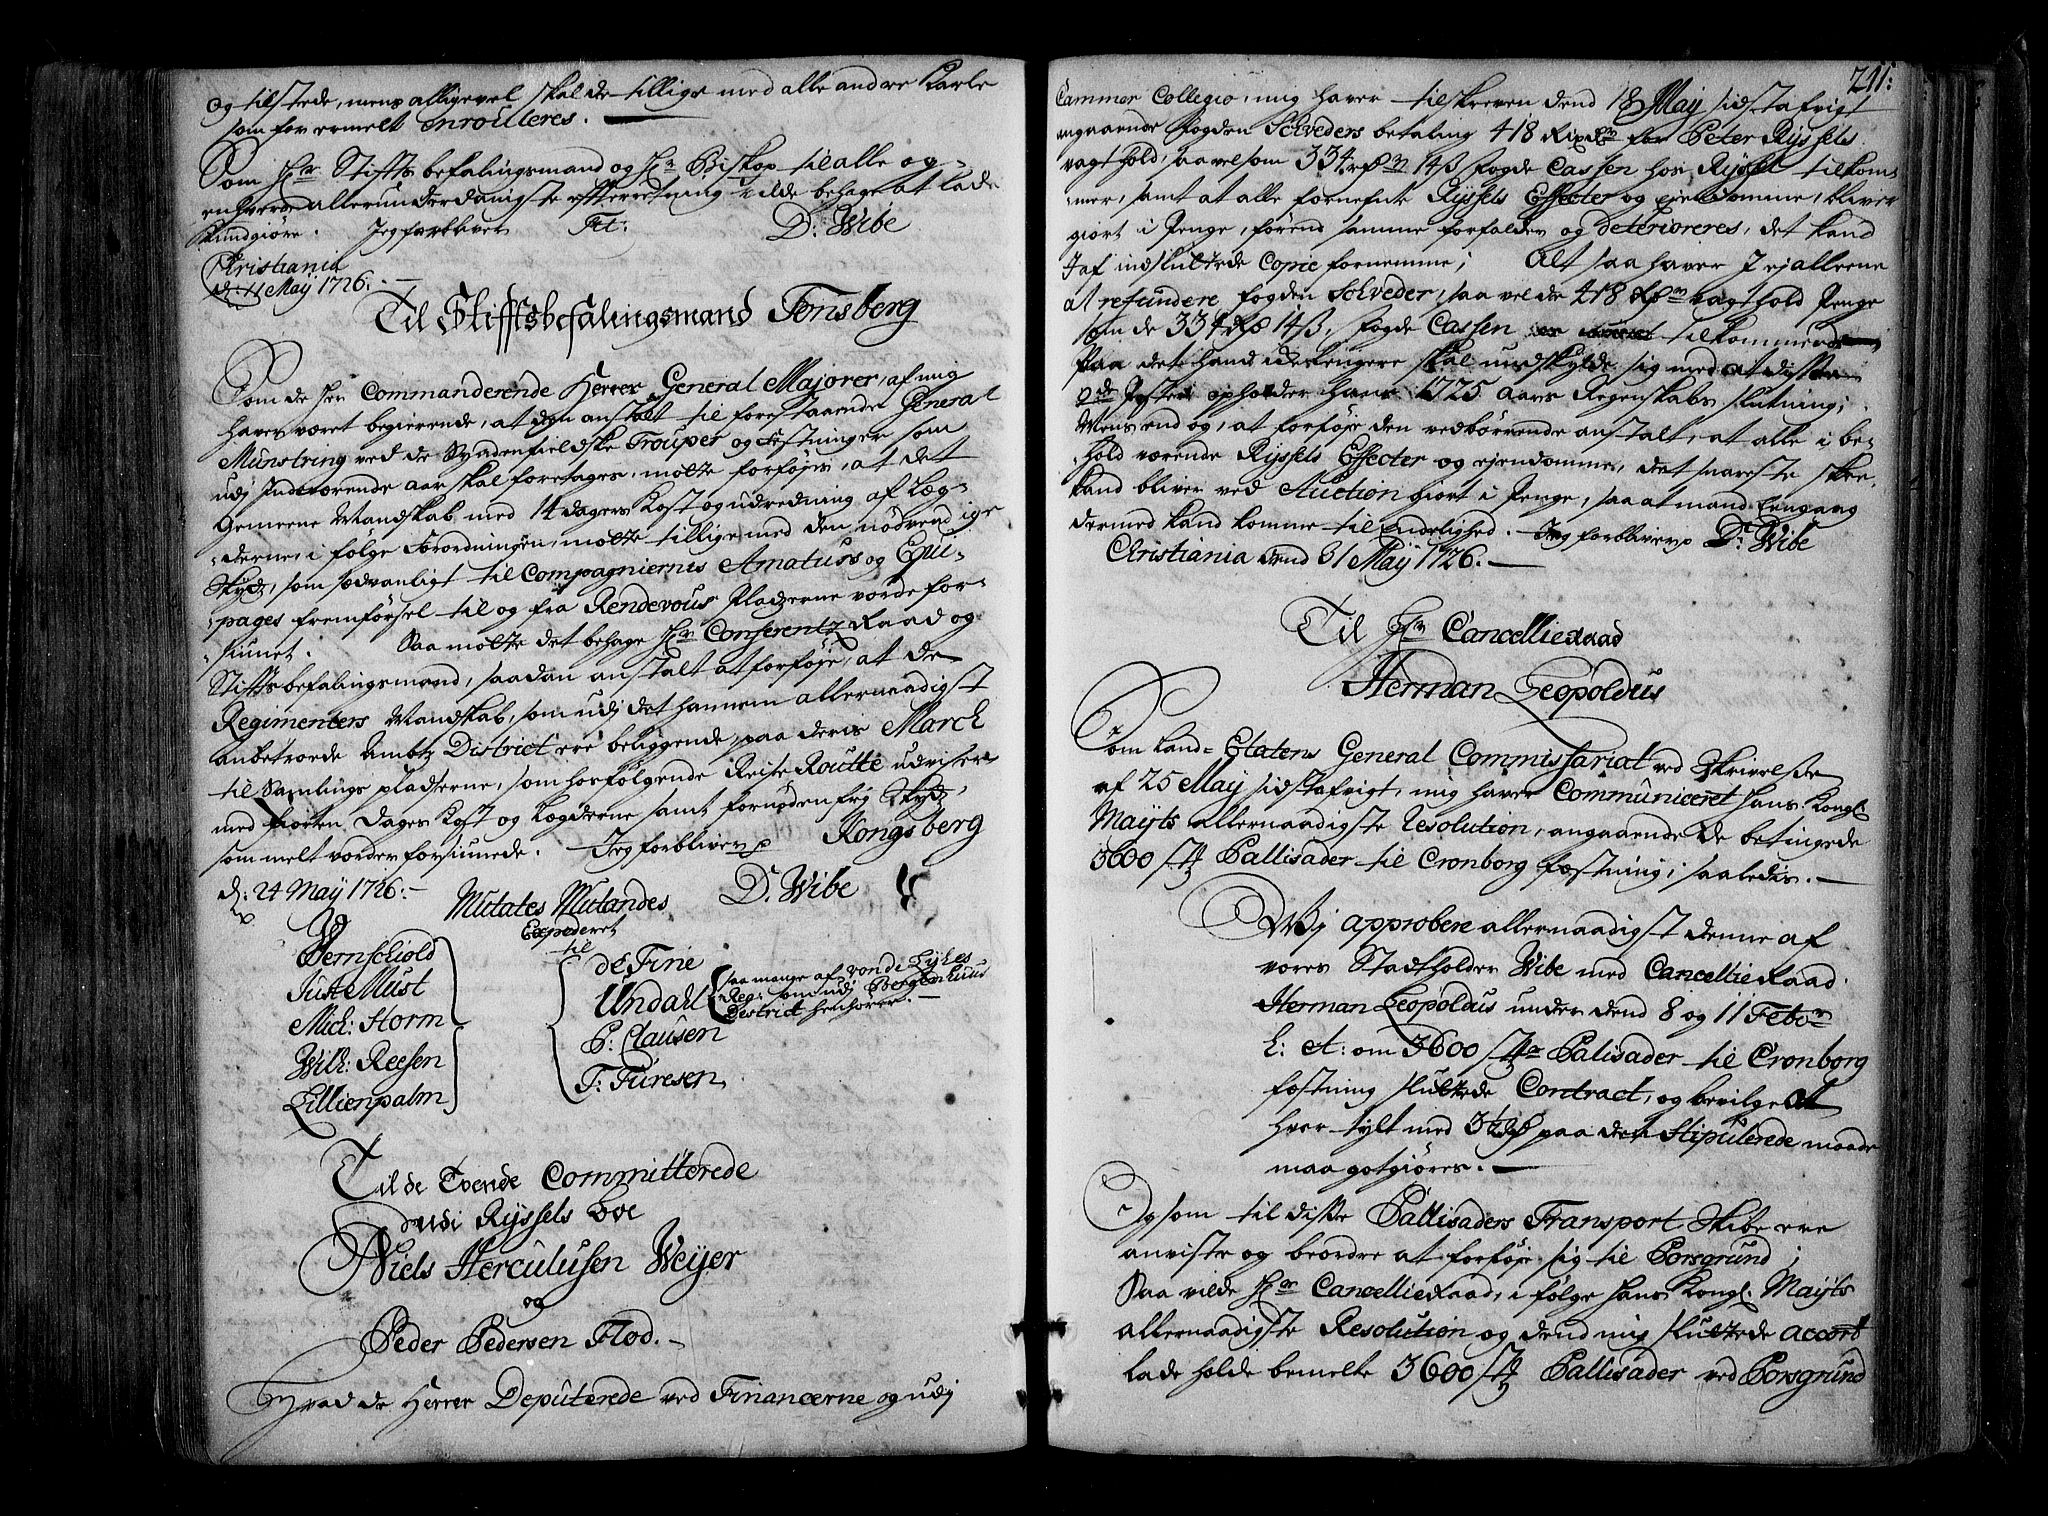 og tilstede, mens alligevel skal de tillige med alle andre Karle
som for ermelt enroulleres.
Som Hr Stiftsbefalingsmand og Hr Biskop til alle og
enhvers allerunderdanigste efterretning vilde behage at lade
Kundgiøre. Jeg forbliver Tit: D: Wibe
Christiania
d: 11 Maij 1726.
Til Stifftsbefalingsmand Tonsberg
Som de her Commanderende Herrer General Majorer, af mig
haver været begierende, at den anstalt til forestaaende General
Munstring ved de Syndenfieldske Troupper og Festninger som
udj Indeværende aar skal foretages, motte forføjes, at det
Gemeene Mandskab med 14 dagers Kost og udredning af Læg-
derne, i følge Forordningen, motte tillige med den nødvendige
Skyds, som sædvanligt til Compagniernis Amaturs og Equi-
pages fremførsel til og fra Rendevous Pladzerne vorde for-
siunet. Saa motte det behage Hr Conferentz Raad og
Stiftsbefalingsmand, saadan anstalt at forføje, at de
Regimenters Mandskab, som udj det hannem allernaadigst
anbetroede Ambtz District ere beliggende, paa deres March
til Samlings pladserne, som hosfølgende Reise Routte udviser
med fiorten Dages Kost og Lægderne samt fornøden frj Skydz,
som melt vorder forsiunede. Jeg forbliver Kongsberg
d: 24 Maij 1726. D: Wibe
Mutates Mutandes
Expederet
til
Wernschiold
Juste Must
Mich: Storm
Wilh: Reesen
Lillienpalm
de Fine
Undahl
P: Clausen
T: Turesen
saa mange af von der Lyhes
Reg: som udj Bergenhuus
District henhører.
Til de Tvende Committerede
udi Rijssels Boe
Niels Herculusen Weijer
og
Peder Pedersen Flod.
Hvad de Herrer Deputerede ved Financerne og udj
211:
Cammer Collegio, mig haver tilskreven dend 18 Maij sidstafvigt
angaaende Fogden Schveders betaling 418 Rixdr for Peter Rijssels
vagthold, saavelsom 334 rdr 14 ß Fogde Cassen hos Rijssel tilkom-
mer, samt at alle fornefnte Rijssels Effecter og ejendomme, bliver
giort i Penge, førend samme forfalder og deterioreres, det kand
I af indsluttede Copie fornemme; Alt saa haver I ej alleene
at refundere Fogden Schveder, saa vel de 418 Rdr vagthold Penge
som de 334 rdr 14 ß, Fogde Cassen tilkommende
Paa det hand icke lengere skal undskylde sig med at disse
Poster opholder hans 1725 aars Regenskabs slutning;
Mens end og, at forføje den vedbørrende anstalt, at alle i be-
hold værende Rijssels Effecter og ejendomme, det snareste skee
kand bliver ved Auction giort i Penge, saa at mand Eengang
dermed kand komme til Endelighed. Jeg forbliver D: Wibe
Christiania dend 31 Maij 1726.
Til Hr Cancellieraad
Herman Leopoldus
Som Land-Etatens General Commissariat ved Skrivelse
af 25 Maij sidstafvigt, mig haver Communiceret hans Kongl
Maijts allernaadigste Resolution, angaaende de betingede
3600 st Pallisader til Cronborg Festning; saaledis.
Wj approbere allernaadigst denne af
vores Stadtholder Wibe med CancellieRaad
Herman Leopoldus under dend 8 og 11 Febr
h: A: om 3600 st Palisader til Cronborg
Festning sluttede Contract, og bevilge at
hver tylt med 3½ rd paa den Stipulerede maade
maa gotgiøres.
Og som til disse Pallisaders Transport Skibe ere
anviste og beordre at forføje sig til Porsgrund;
Saa vilde Hr CancellieRaad, i følge hans Kongl. Maijts
allernaadigste Resolution og dend mig sluttede accort
lade holde bemelte 3600 st Pallisader ved Porsgrund